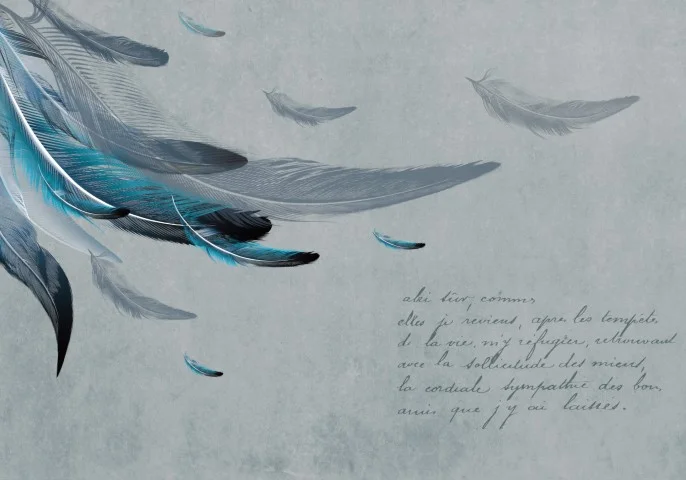 abri sûr, comme
elles je reviens, après les tempêtes
de la vie, m'y réfugier, retrouvant
avec la sollicitude des miens,
la cordiale sympathie des bons
amis que j'y ai laissés.